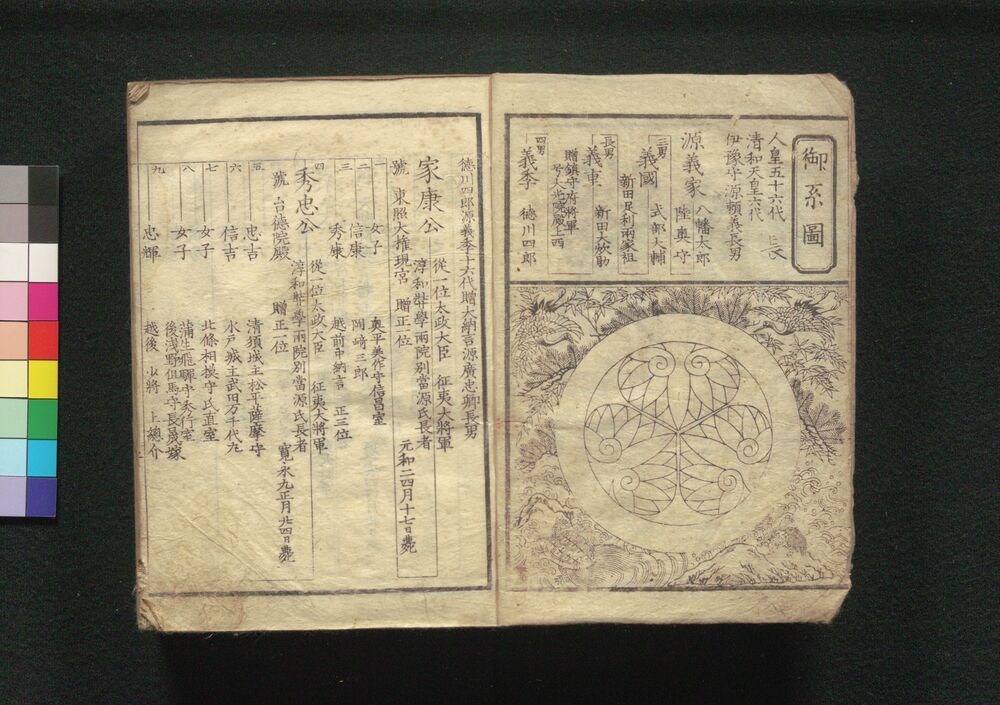 御系圖
人皇五十六代
清和天皇六代
伊豫守源頼義長男
源義家 八幡太郎
陸奥守
三男
義國 式部大輔
新田足利兩家祖
長男
義重 新田大炊助
贈鎮守府將軍
四男
義季 徳川四郎
徳川四郎源義季十六代贈大納言源廣忠卿長男
家康公 從一位太政大臣 征夷大將軍
淳和弉學兩院別當源氏長者
號 東照大權現宮 贈正一位 元和二四月十七日薨
一 女子 奥平美作守信昌室
二 信康 岡﨑三郎
三 秀康 越前中納言 正三位
四 秀忠公 從一位太政大臣 征夷大將軍
淳和弉學兩院別當源氏長者
號 台德院殿 贈正一位 寛永九正月廿四日薨
五 忠吉 清須城主松平薩摩守
六 信吉 水戸城主武田万千代丸
七 女子 北條相摸守氏直室
八 女子 蒲生飛驒守秀行室
後淺野但馬守長晟嫁
九 忠輝 越後少將 上總介